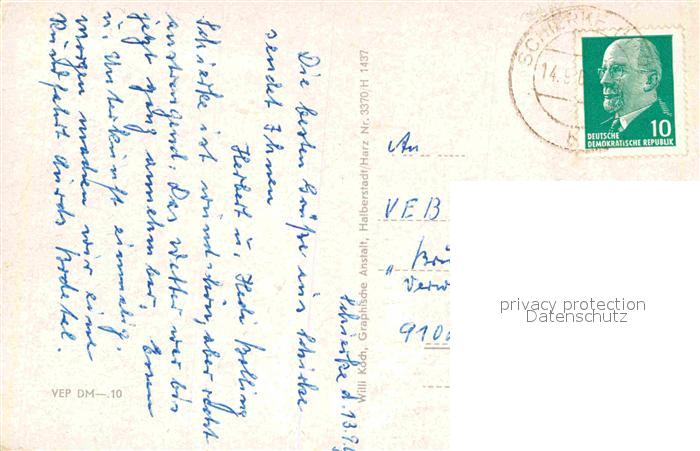 Schierke d. 13.9.6
Die besten Grüße aus Schierke
sendet Ihnen
Herbert u. Hedi
Schierke ist wunderschön, aber recht
anstrengend. Das Wetter war bis
jetzt ganz annehmbar. Essen
u. Unterkunft einmalig.
Morgen machen wir eine
Rundfahrt durchs Bodetal.
VEP DM—.10
Willi Koch, Graphische Anstalt, Halberstadt/Harz Nr. 3370 H 1437
SCHIERKE
14.9.6
b
10
DEUTSCHE
DEMOKRATISCHE REPUBLIK
An
VEB
910
privacy protection
Datenschutz